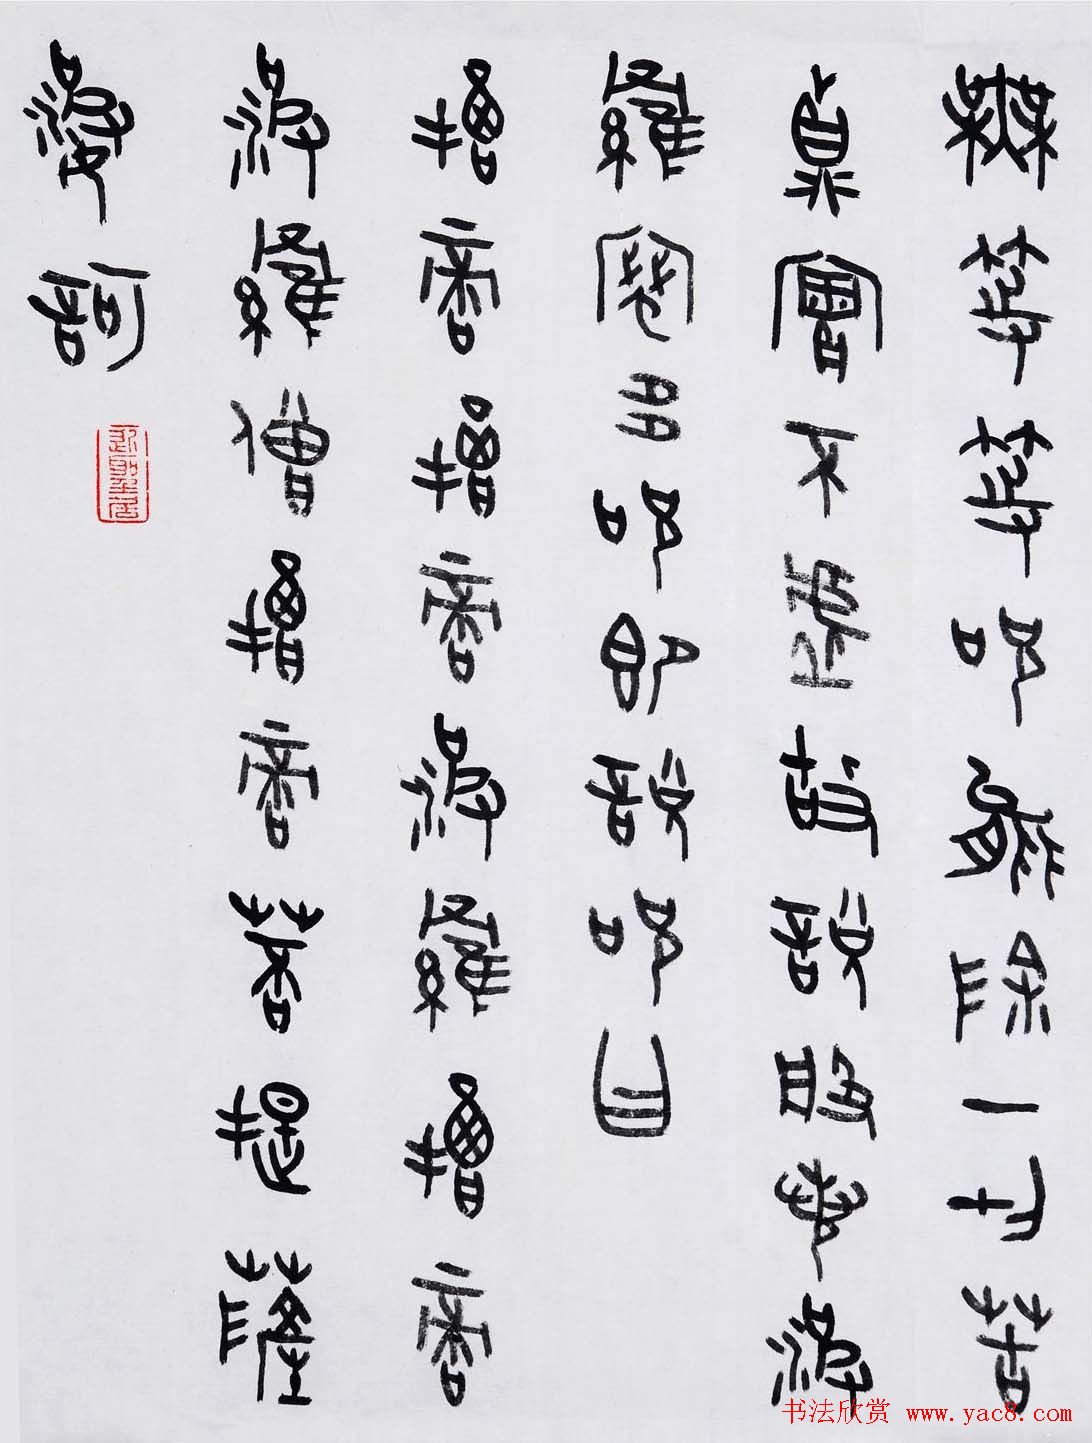 無等等咒能除一切苦
真實不虛故說般若波
羅蜜多咒即說咒曰
揭帝揭帝波羅揭帝
波羅僧揭帝菩提薩
婆訶
书法欣赏 www.yac8.com